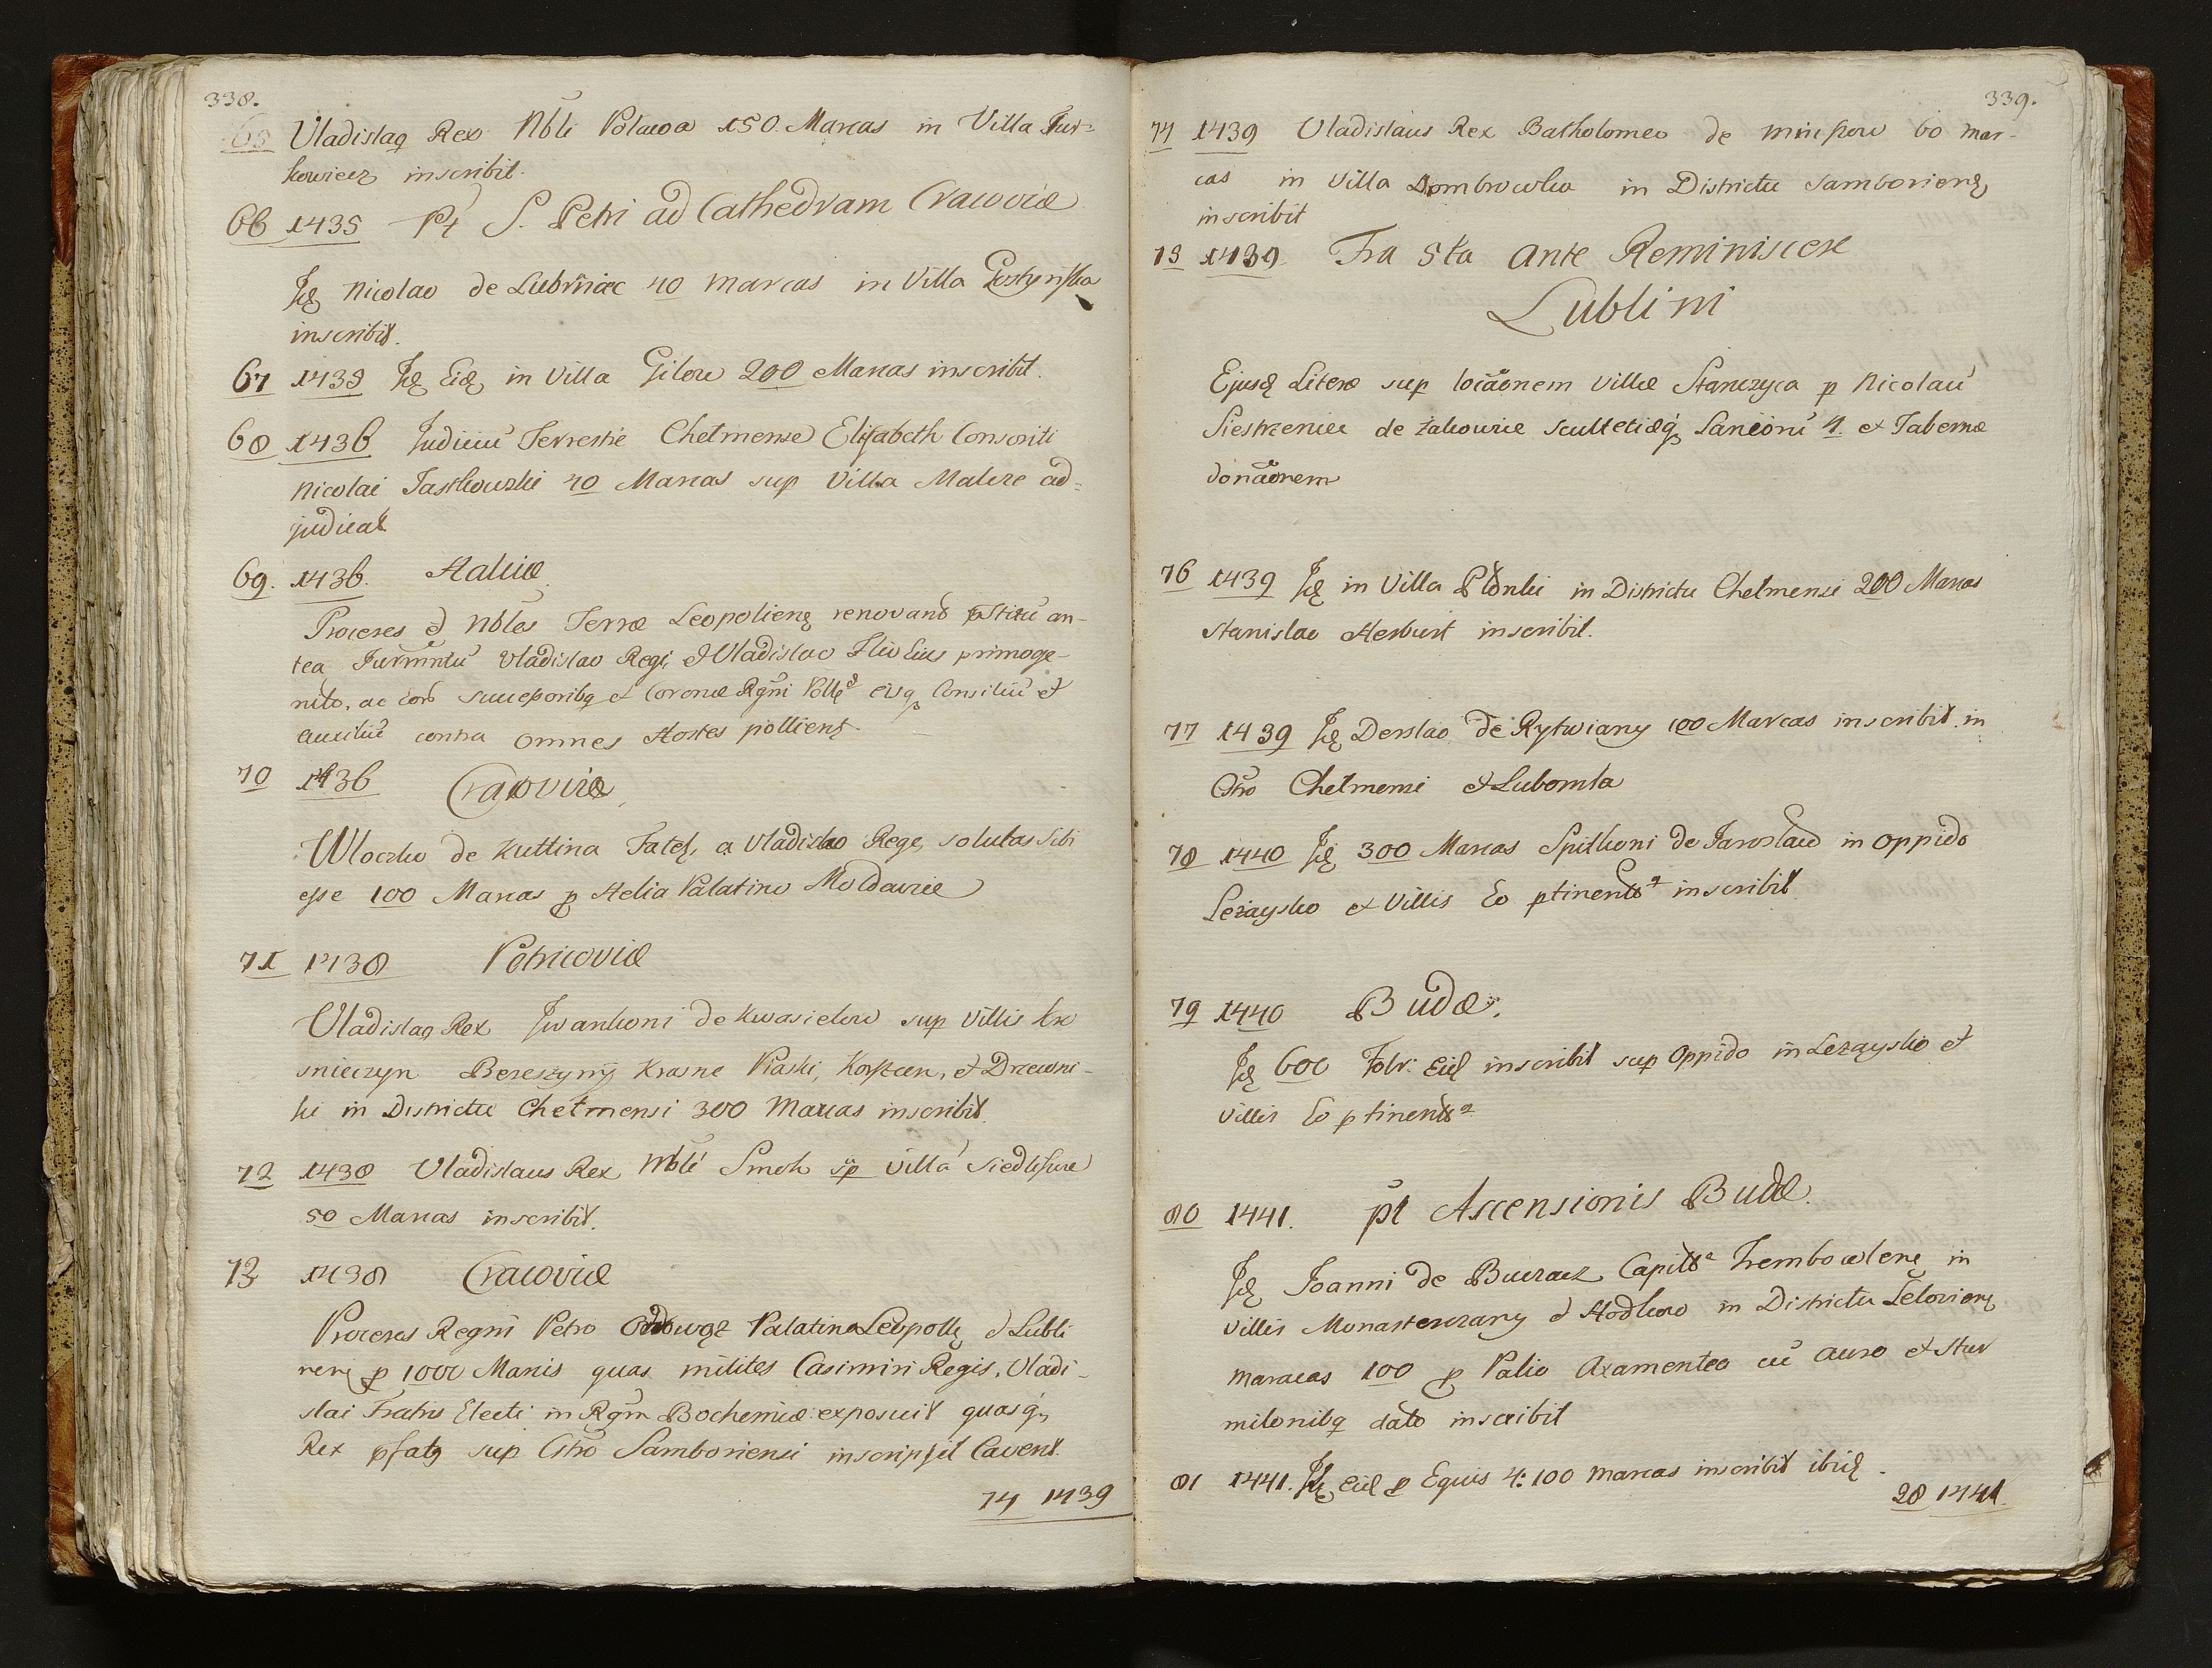 338.
65 Vladislaq Rex Nbli Polacoa 150. Marcas in Villa Tur=
kowiecz inscribit.
66 1435 Pt S. Petri ad Cathedram Cracoviæ
Idę Nicolao de Lubriniec 40 marcas in Villa
inscribit.
67 1435 Idę Eidę in Villa Gilow 200 Marcas inscribit.
68 1436 Judiciū Terrestre Chelmense Elisabeth Consorti
Nicolai Jaskowski 40 Marcas sup Villa Malcze ad=
judicat.
69. 1436. Haliciæ
Proceres et Nbles Terræ Leopolieng renovand pstitū an-
tea Jurmntū Vladislao Regi, et Vladislao Flio Eius primoge-
nito, ac eor successoribq et Coronæ Rgni Pollę eisq Consiliū et
auxiliū contra omnes Hostes pollicent.
70 1436 Cracoviæ
Wloczko de Kuttina Fatet, a Vladislao Rege, solutas sibi
esse 100 Marcas p Helia Palatino Moldaviæ
71 1438 Petricoviæ
Vladislaq Rex Iwankoni de Kwasielow sup villis Kra
sniczyn Berestyny Krasne Piaski, et Drzewni-
ki in Districtu Chelmensi 300 Marcas inscribit.
72 1438 Vladislaus Rex Nbli Smok sp villa Siedliszcze
50 Marcas inscribit.
73 1438 Cracoviæ
Proceres Regni Petro Odrowąż Palatino Leopolię et Lubli
neñ p 1000 Marcis quas milites Casimiri Regis, Vladi-
slai Fratris Electi in Rgm Bochemiæ exposuit quasq
Rex pfatq sup Cstro Samboriensi inscripsit Cavent.
74 1439

339.
74 1439 Vladislaus Rex Batholomeo de 60 mar-
cas in Villa Dombrowka in Districtu Samborieng
inscribit
75 1439. Fra 5ta ante Reminiscere
Lublini
Ejusdę Literæ sup locaõnem villæ Stanczyca p Nicolaū
Siestrzeniec de Zakowice Scultetiæq Laneorū 4 et Tabernæ
donaõnem
76 1439 Idę in Villa Plonki in Districtu Chelmensi 200 Marcas
Stanislao Herburt inscribit.
77 1439 Idę Derslao de Rytwiany 100 Marcas inscribit in
Cstro Chelmensi et Lubomla
78 1440 Idę 300 Marcas Spitkoni de Jaroslaw in Oppido
Leżaysko et Villis Eo ptinentb inscribit.
79 1440 Budæ.
Idę 600 Folr: Eidę inscribit sup Oppido in Leżaysko et
Villis Eo ptinentb
80 1441. pt Ascensionis Budæ.
Idę Joanni de Buczacz Capito Trembowleng in
Villis Monasterczany et Hodkow in Districtu
maracas 100 p Palio Axamenteo cū auro et Stur
milonibq dato inscribit
81 1441. Idę Eidę p Equis 4: 100 marcas inscribit ibidę.
28 1441.